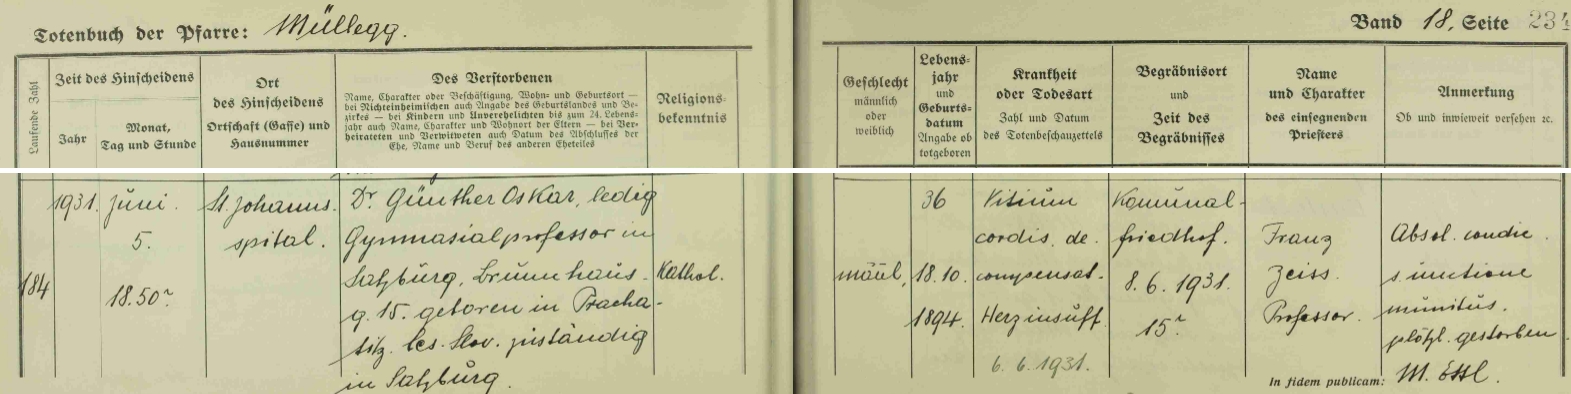 Totenbuch der Pfarre: Müllegg.
Band 18. Seite 234
Laufende Zahl
Zeit des Hinscheidens
Jahr
Monat,
Tag und Stunde
Ort
des Hinscheidens
Ortschaft (Gasse) und
Hausnummer
Des Verstorbenen
Name, Charakter oder Beschäftigung, Wohn- und Geburtsort —
bei Nichteinheimischen auch Angabe des Geburtslandes und Be-
zirkes — bei Kindern und Unverehelichten bis zum 24. Lebens-
jahr auch Name, Charakter und Wohnort der Eltern — bei Ver-
heirateten und Verwitweten auch Datum des Abschlusses der
Ehe, Name und Beruf des anderen Eheteiles
Religions-
bekenntnis
Geschlecht
männlich
oder
weiblich
Lebens-
jahr
und
Geburts-
datum
Angabe ob
totgeboren
Krankheit
oder Todesart
Zahl und Datum
des Totenbeschauzettels
Begräbnisort
und
Zeit des
Begräbnisses
Name
und Charakter
des einsegnenden
Priesters
Anmerkung
Ob und inwieweit versehen ec.
184
1931.
Juni.
5.
18.50r
St. Johanns.
spital.
Dr. Günther Oskar, ledig
Gymnasialprofessor in
Salzburg, Brunnhaus-
g. 15. geboren in Pracha-
titz. čes. Slov. zuständig
in Salzburg.
Kathol.
männl.
36
18.10.
1894.
Vitium
cordis, de-
compensat.
Herzinsuff.
6. 6. 1931.
Komunal-
friedhof.
8. 6. 1931.
15r
Franz
Zeiss.
Professor.
Absol. condic.
s. unctione
munitus.
plötzl. gestorben
In fidem publicam: M. Ettl.